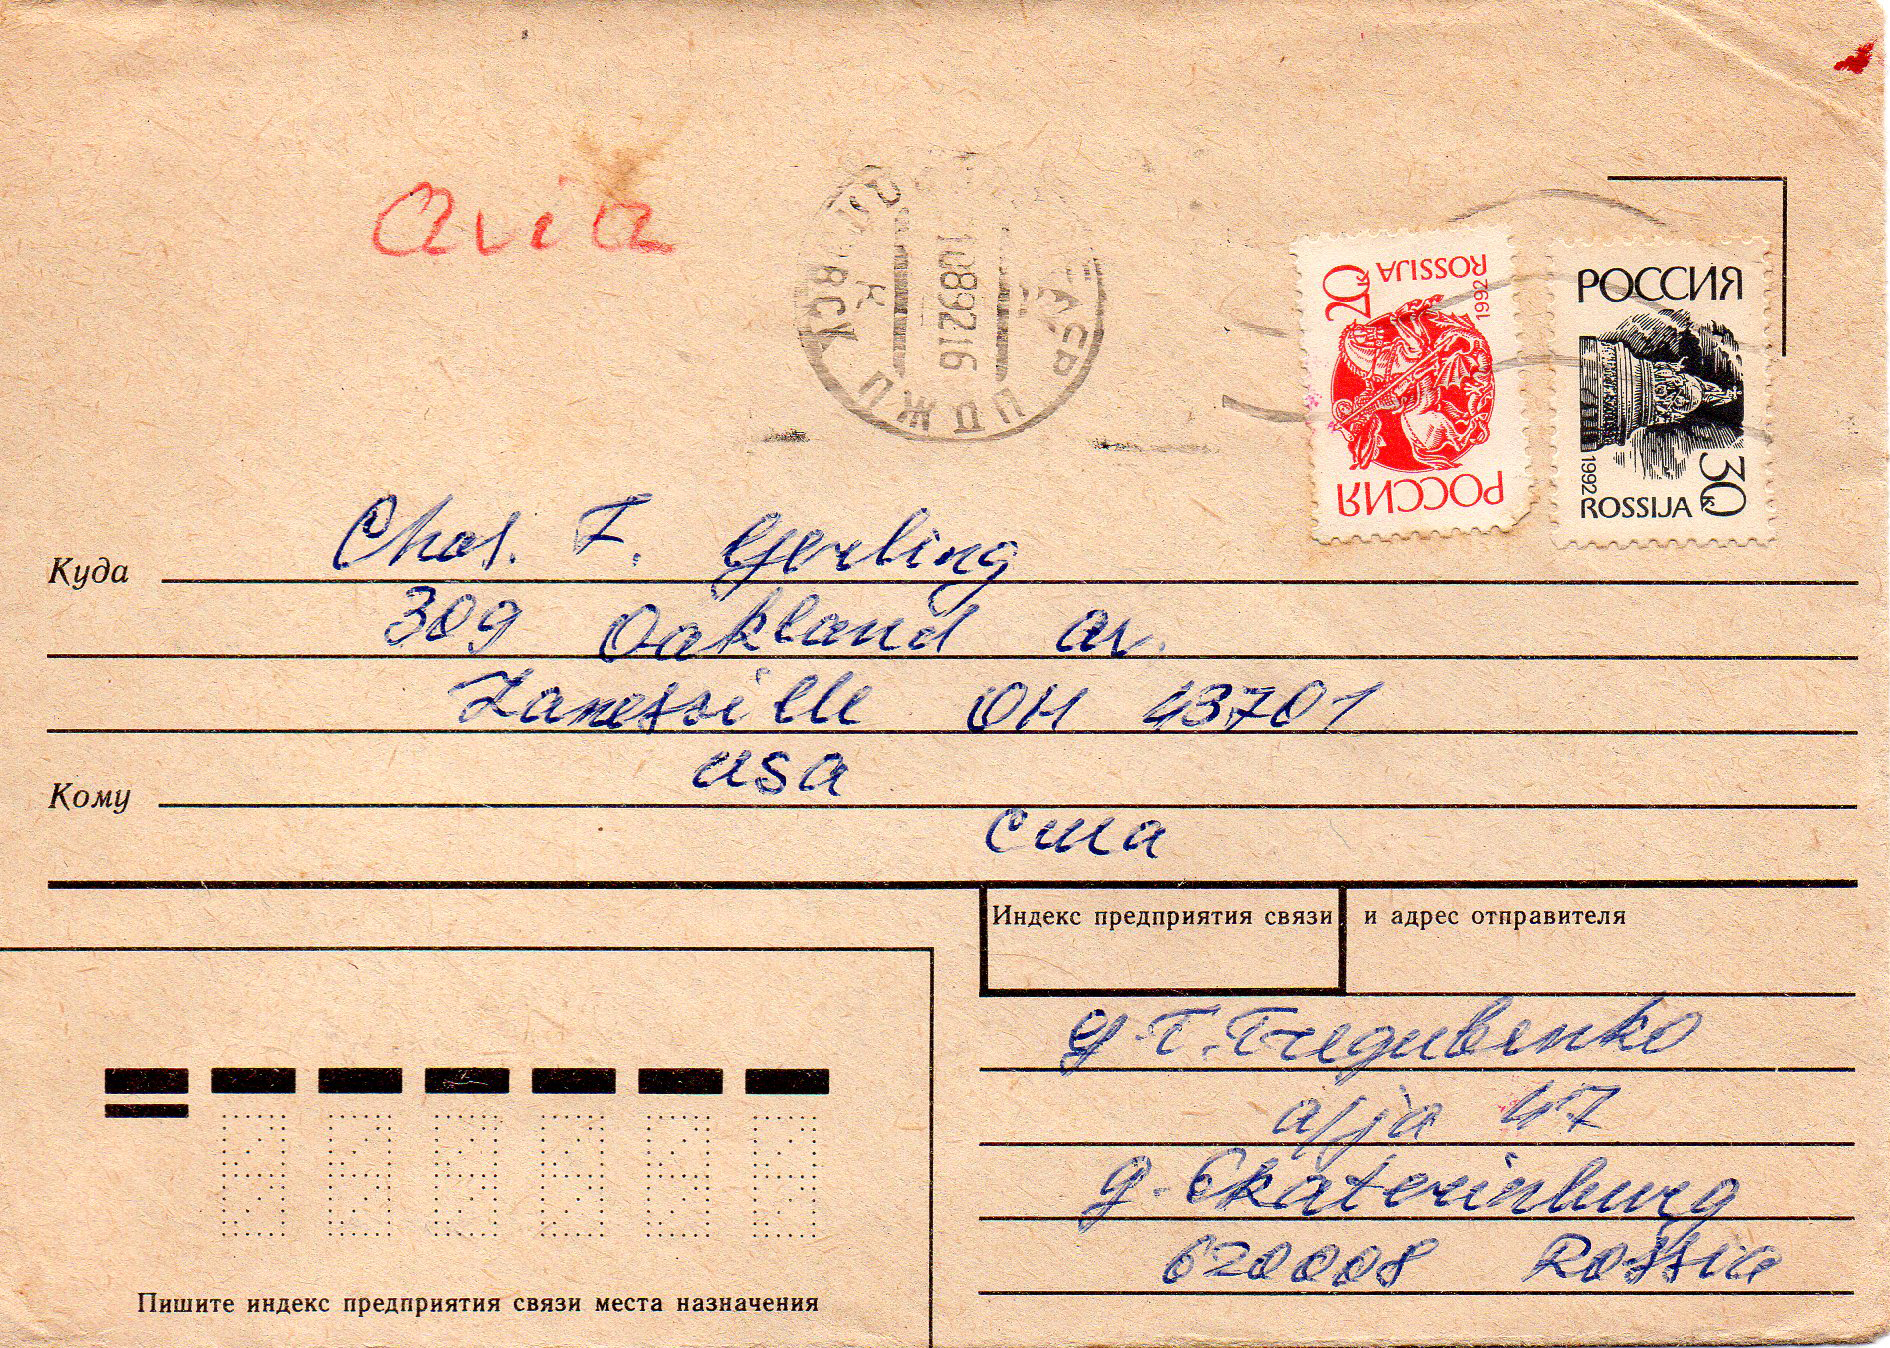 avia
1 0892 16
ПЖДП
20 к
ROSSIJA
1992
РОССИЯ
РОССИЯ
30 к
1992
ROSSIJA
Chas. F. Gerling
Куда
309 Oakland av.
Zanesville OH 43701
USA
Кому
США
Индекс предприятия связи и адрес отправителя
a/ja 47
g. Ekaterinburg
620008 Rossia
Пишите индекс предприятия связи места назначения